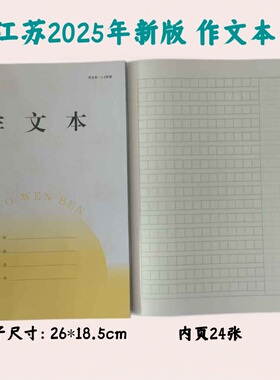 江苏2025年新版 作文本
作文本
ZUO WEN BEN
子尺寸: 26*18.5cm
内頁24张